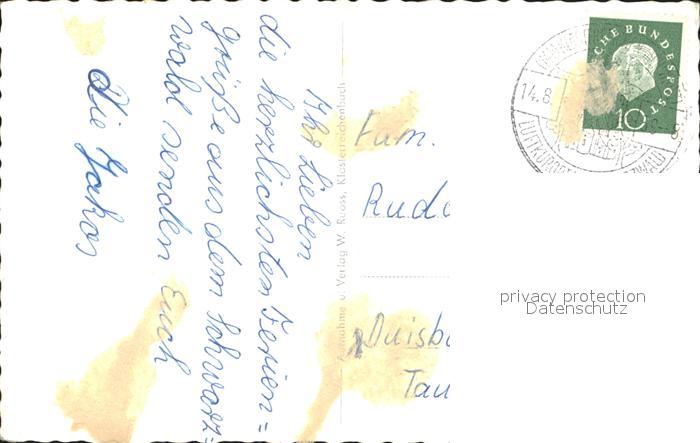 Ihr Lieben
die herzlichsten Ferien=
grüße aus dem Schwarz=
wald senden Euch
Die Jakos
Aufnahme u. Verlag W. Roos, Klosterreichenbach
Fam.
Rudo
Duisb
Tau
CHE BUNDESPOST
10
14.8.
LUFTKURORT
privacy protection
Datenschutz